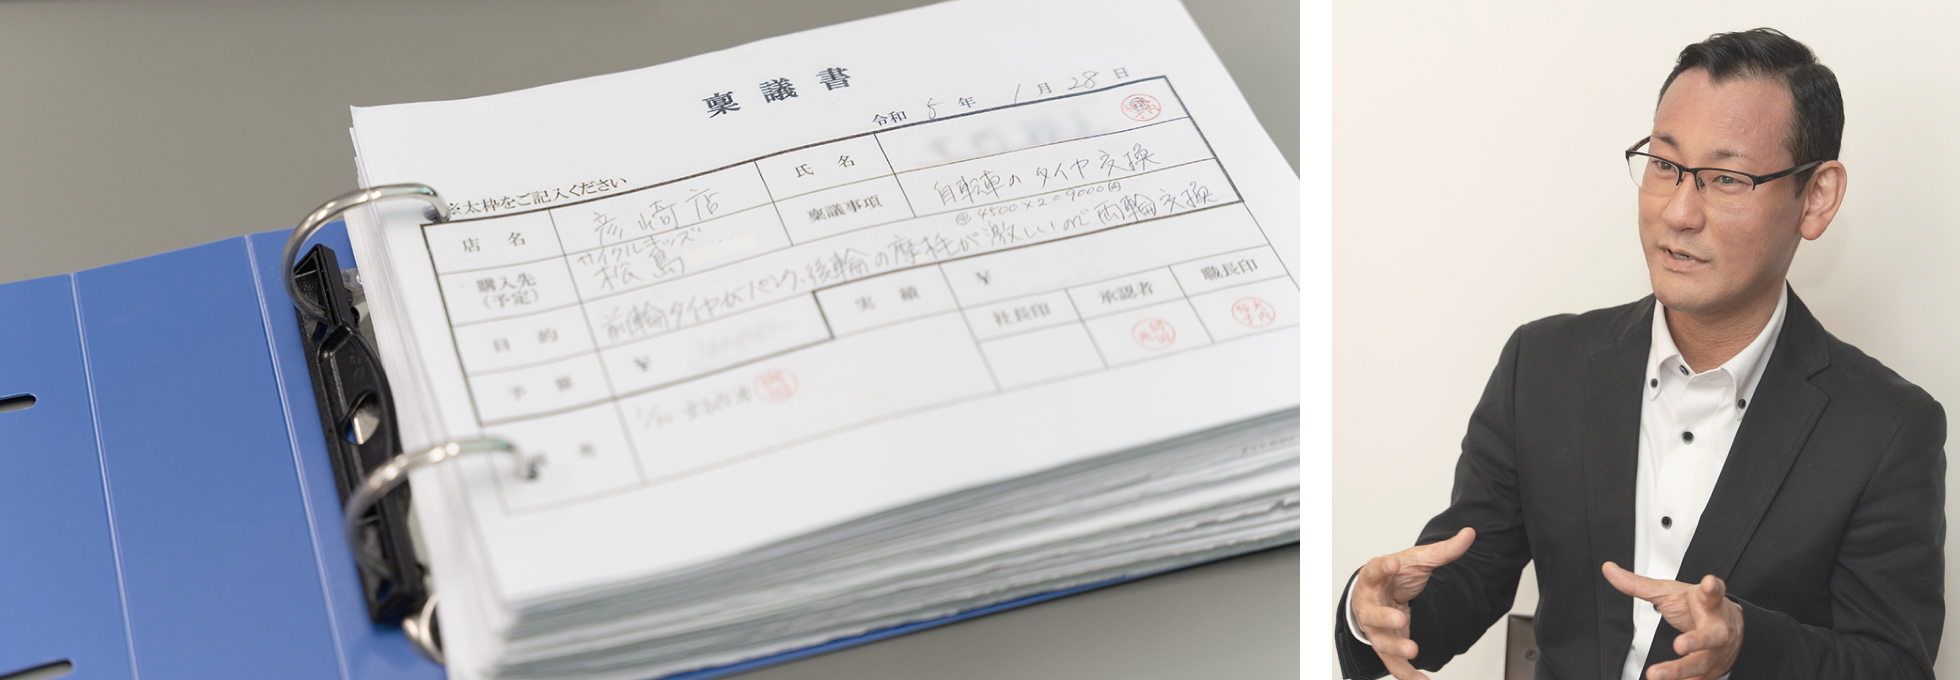 稟議書
令和 5 年 1 月 28 日
※太枠をご記入ください
店名 彦崎店 氏名
購入先(予定) サイクルキッズ 松島 稟議事項 自転車のタイヤ交換
@4500×2=9000円
目的 前輪タイヤがパンク、後輪の摩耗が激しいので両輪交換
予算 ¥ 実績 ¥
社長印 承認者 職長印
考